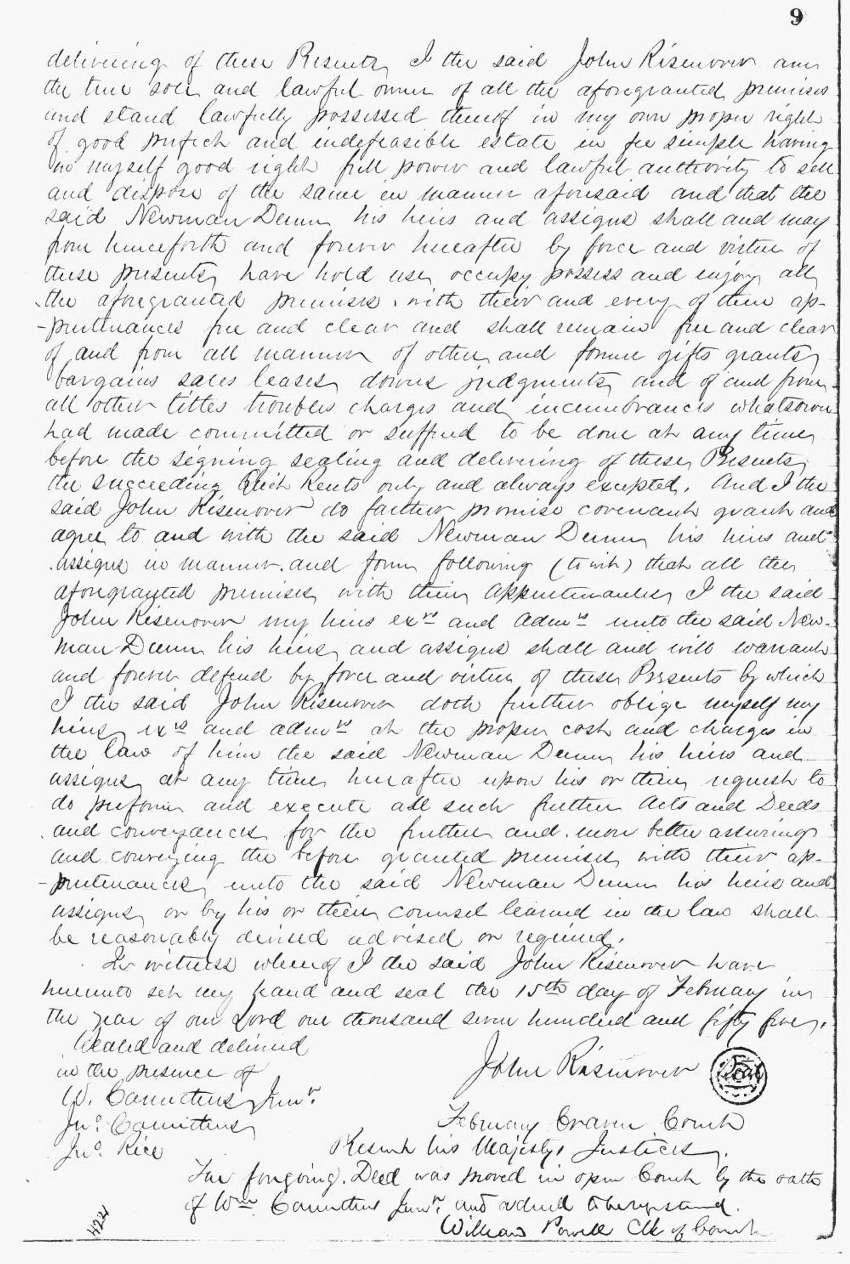 9
delivering of these Presents, I the said John Risenover am
the true sole and lawful owner of all the aforegranted premises
and stand lawfully possessed thereof in my own proper right
of good perfect and indefeasible estate in fee simple having
in myself good right full power and lawful authority to sell
and dispose of the same in manner aforesaid and that the
said Newman Dunn his heirs and assigns shall and may
from henceforth and forever hereafter by force and virtue of
these presents, have hold use, occupy, possess and enjoy all
the aforegranted premises with their and every of their ap-
-purtenances free and clear and shall remain free and clear
of and from all manner of other and former gifts grants,
bargains sales leases, dowers judgments, and of and from
all other titles troubles charges and incumbrances whatsoever
had made committed or suffered to be done at any time,
before the signing sealing and delivering of these, Presents,
the succeeding Quit Rents only and always excepted. And I the
said John Risenover do further promise covenant grant and
agree to and with the said Newman Dunn, his heirs and
assigns in manner and form following (to wit) that all the
aforegranted premises, with their appurtenances I the said
John Risenover my heirs exrs and admrs unto the said New-
man Dunn his heirs, and assigns shall and will warrant
and forever defend by force and virtue of these Presents by which
I the said John Risenover doth further oblige myself my
heirs, exrs and admrs at the proper cost and charges in
the law of him the said Newman Dunn, his heirs and
assigns, at any time, hereafter upon his or their, request to
do perform and execute all such further Acts and Deeds
and conveyances, for the further and more better assuring
and conveying the before granted premises, with their ap-
-purtenances, unto the said Newman Dunn his heirs and
assigns, or by his or their, counsel learned in the law shall
be reasonably devised advised or required.
In witness whereof I the said John Risenover have
hereunto set my hand and seal the 15th day of February in
the year of our Lord one thousand seven hundred and fifty five.
Sealed and delivered
in the presence of
W. Carruthers, Junr.
Jno. Carruthers,
Jno. Rice
John Risenover Seal
February Craven Court
Present his Majesty's Justices,
The foregoing Deed was proved in open Court by the oath
of Wm. Carruthers Junr. and ordered to be registered.
William Powell Clk of Court
4221